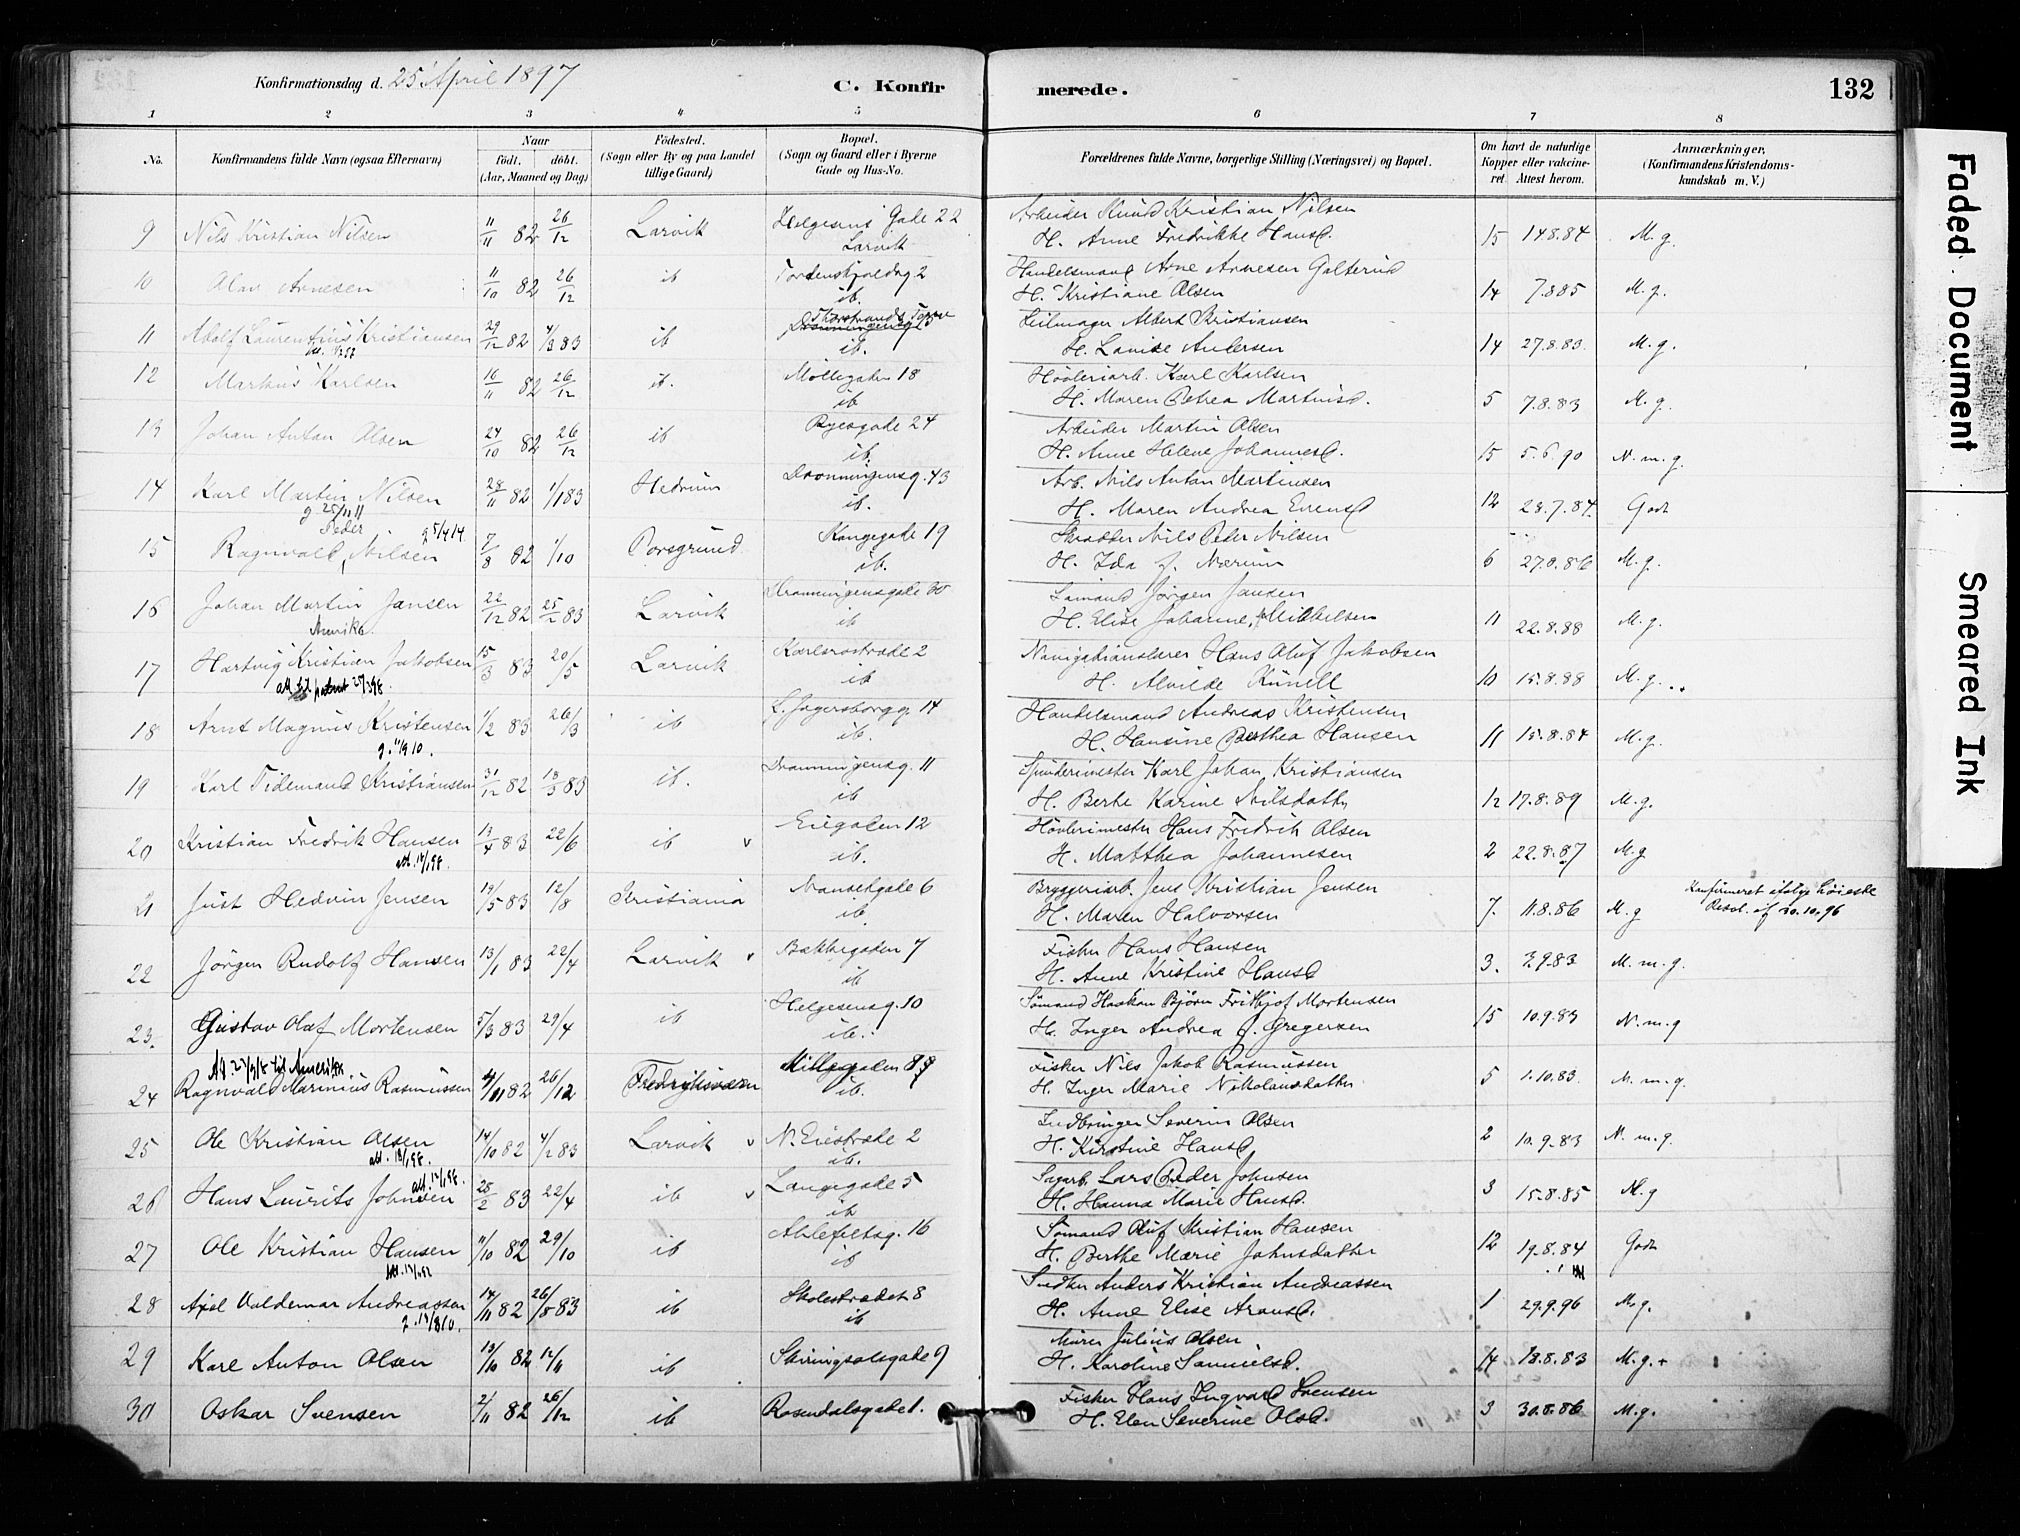 Konfirmationsdag d. 25 April 1897 C. Konfirmerede. 132
1 2 3 4 5 6 7 8
No. Konfirmandens fulde Navn (ogsaa Efternavn) Naar født. døbt. (Aar, Maaned og Dag) Fødested. (Sogn eller By og paa Landet tillige Gaard) Bopæl. (Sogn og Gaard eller i Byerne Gade og Hus-No. Forældrenes fulde Navne, borgerlige Stilling (Næringsvei) og Bopæl. Om havt de naturlige Kopper eller vakcineret. Attest herom. Anmærkninger, (Konfirmandens Kristendomskundskab m. V.)
9 Nils Kristian Nilsen 11/11 82 26/12 Larvik Helgesens Gade 22 Larvik Arbeider Knud Kristian Nilsen H. Anne Fredrikke Hansd. 15 14.8.84 M. g.
10 Olav Arnesen 11/10 82 26/12 ib Tordenskjoldsg 2 ib. Handelsmand Arne Arnesen Galterud H. Kristiane Olsen 14 7.8.85 M. g.
11 Adolf Laurentius Kristiansen 29/12 82 4/3 83 ib ib. Albert Kristiansen H. Lovise Andersen 14 27.8.83 M. g.
12 Markus Karlsen 16/11 82 26/12 ib. Møllegaden 18 ib Høvleriarb. Karl Karlsen H. Maren Petrea Martinsd. 5 7.8.83 M. g.
13 Johan Anton Olsen 24/10 82 26/12 ib Byesgade 24 ib. Arbeider Martin Olsen H. Anne Helene Johannesd. 15 5.6.90 N. m. g.
14 Karl Martin Nilsen 28/11 82 1/1 83 Hedrum Dronningensg. 43 ib. Arb. Nils Anton Martinsen H. Maren Andrea Evensd 12 23.7.84. Godt
g 25/11 11
15 Ragnvald Peder Nilsen g 5/4 14. 7/8 82 1/10 Porsgrund Kongegade 19 ib. Skrædder Nils Peder Nilsen H. Ida f. Nærum 6 27.8.86 M. g.
16 Johan Martin Jansen 22/12 82 25/2 83 Larvik Dronningensgade 30 ib Sømand Jørgen Jansen H. Elise Johanne Mikkelsen 11 22.8.88 M. g.
17 Hartvig Kristian Jakobsen 15/3 83 20/5 Larvik Karlsrostræde 2 ib Navigationslærer Hans Oluf Jakobsen H. Alvilde Künell 10 15.8.88 M. g.
18 Arnt Magnus Kristensen 1/2 83 26/3 ib L. Jægersborgg 14 ib. Handelsmand Andreas Kristensen H. Hansine Berthea Hansen 11 15.8.84 M. g.
g. 11/9 10.
19 Karl Tidemand Kristiansen 31/12 82 13/5 83 ib. Dronningensg. 11 ib Spinderimester Karl Johan Kristiansen H. Berthe Karine Nilsdatter 12 17.8.89 M. g.
20 Kristian Fredrik Hansen 13/4 83 22/6 ib v Eiegaden 12 ib. Høvlerimester Hans Fredrik Olsen H. Matthea Johannesen 2 22.8.87 M. g
att. 13/1 98.
21 Just Hedvin Jensen 19/5 83 12/8 Kristiania Nansetgade 6 ib Bryggeriarb. Jens Kristian Jensen H. Maren Halvorsen 7. 11.8.86 M. g Konfirmeret ifølge høieste Resol. af 20.10.96
22 Jørgen Rudolf Hansen 13/1 83 22/4 Larvik v Bakkegaden 7 ib Fisker Hans Hansen H. Anne Kristine Hansd 3. 3.9.83 M. m. g.
23. Gustav Olaf Mortensen 5/3 83 29/4 ib Helgesensg. 10 ib. Sømand Haakon Bjørn Frithjof Mortensen H. Inger Andrea f. Gregersen 15 10.9.83 N. m. g
24 Ragnvald Marinius Rasmussen 4/11 82 26/12 Fredriksværn ib. Fisker Nils Jakob Rasmussen H. Inger Marie Nikolaisdatter 5 1.10.83. M. m. g.
25 Ole Kristian Olsen 14/10 82 4/2 83 Larvik v N. Eiestræde 2 ib. Indbringer Severin Olsen H. Kirstine Hansd 2 10.9.83 N. m. g.
att. 13/1 98.
26 Hans Laurits Johnsen att. 13/1 98. 25/2 83 22/4 ib v Langegade 5 ib Sagarb. Lars Peder Johnsen H. Hanna Marie Hansd. 3 15.8.85 M. g
27 Ole Kristian Hansen 11/10 82 29/10 ib Ahlefeltsg. 16 ib Sømand Oluf Kristian Hansen H. Berthe Marie Johnsdatter 12 19.8.84 Godt
28 Axel Valdemar Andreassen 14/11 82 26/8 83 ib Skolestrædet 8 ib Snedker Anders Kristian Andreassen H. Anne Elise Aronsd. 1 29.9.96 M. g.
g. 13/8 10.
29 Karl Anton Olsen 13/10 82 12/11 ib Skiringsalsgade 9 Murer Julius Olsen H. Karoline Samuelsd. 14 18.8.83 M. g. +
30 Oskar Svensen 2/11 82 26/12 ib Rosendalsgade 1. Fisker Hans Ingvald Svensen H. Elen Severine Olsd. 3 30.8.86 M. g.
Faded Document
Smeared Ink